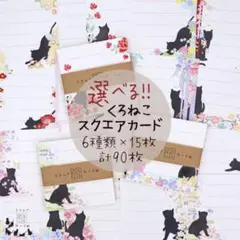 選べる!!
くろねこ
スクエアカード
6種類×15枚
計90枚